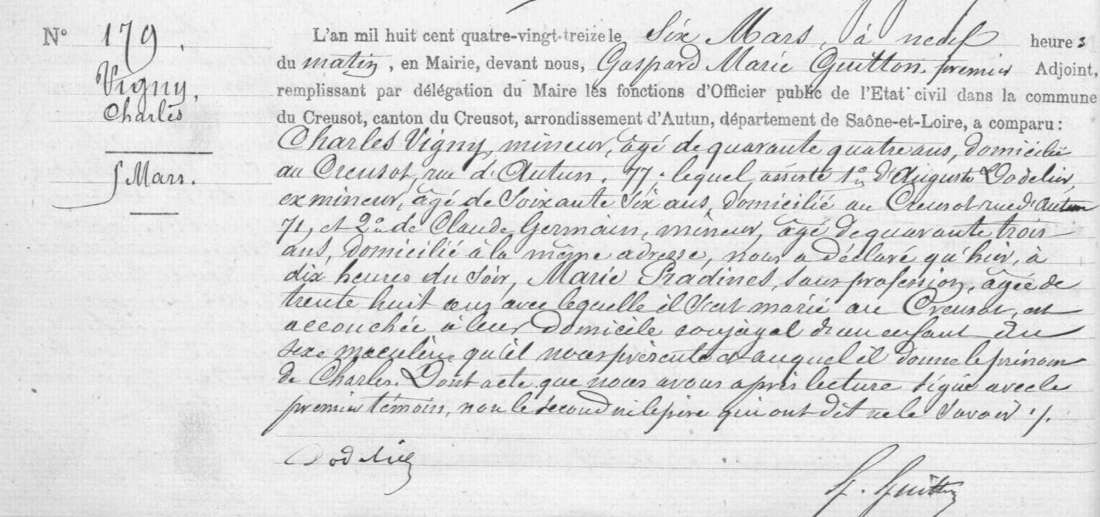 N° 179.
Vigny,
Charles
5 Mars.
L'an mil huit cent quatre-vingt-treize le Six Mars, à neuf heures
du matin, en Mairie, devant nous, Gaspard Marie Guitton, premier Adjoint,
remplissant par délégation du Maire les fonctions d'Officier public de l'Etat civil dans la commune
du Creusot, canton du Creusot, arrondissement d'Autun, département de Saône-et-Loire, a comparu :
Charles Vigny, mineur, âgé de quarante quatre ans, domicilié
au Creusot, rue d'Autun, 77. lequel, assisté 1° d'Auguste Dodelin,
ex mineur, âgé de Soixante Six ans, domicilié au Creusot rue d'Autun
71, et 2° de Claude Germain, mineur, âgé de quarante trois
ans, domicilié à la même adresse, nous a déclaré qu'hier, à
dix heures du Soir, Marie Pradines, sans profession, âgée de
trente huit ans avec lequelle il s'est marié au Creusot, est
accouchée à leur domicile conjugal d'un enfant du
sexe masculin qu'il nous présente et auquel il donne le prénom
de Charles. Dont acte que nous avons après lecture signé avec le
premier témoin, non le second ni le père qui ont dit ne le Savoir ./.
Dodelin
G. Guitton